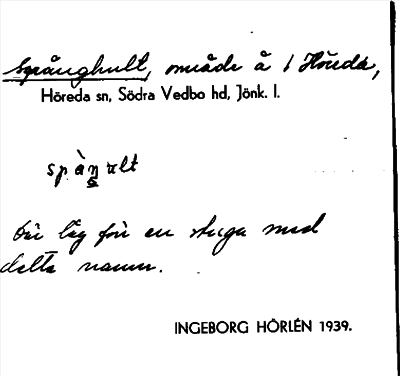 Spånghult, område å 1 Höreda,
Höreda sn, Södra Vedbo hd, Jönk. l.
Där låg förr en stuga med
detta namn.
INGEBORG HÖRLÉN 1939.